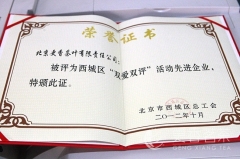 荣誉证书
北京麦香茶叶有限责任公司：
被评为西城区“双爱双评”活动先进企业，
特颁此证。
北京市西城区总工会
二〇一二年十月